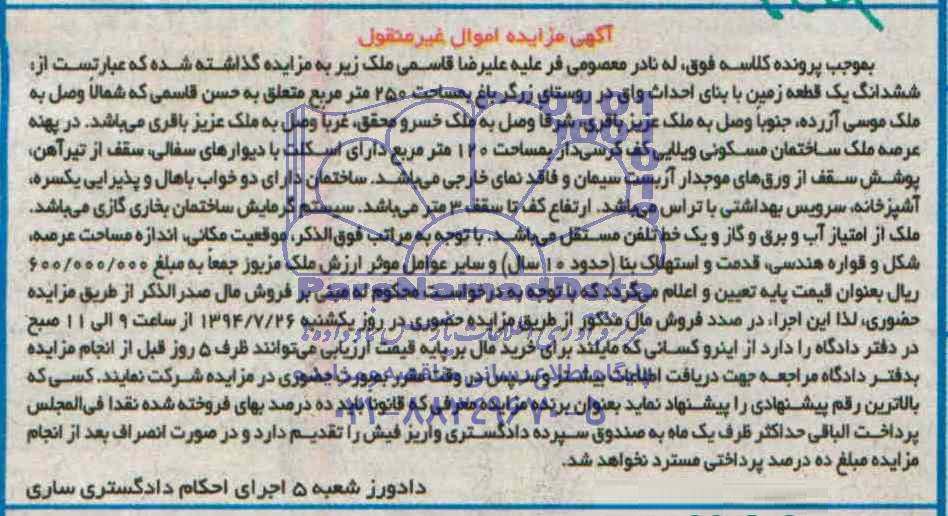 آگهی مزایده اموال غیرمنقول
بموجب پرونده کلاسه فوق، له نادر معصومی فر علیه علیرضا قاسمی ملک زیر به مزایده گذاشته شده که عبارتست از:
ششدانگ یک قطعه زمین با بنای احداث واقع در روستای زرگرباغ بمساحت ۲۵۰ متر مربع متعلق به حسن قاسمی که شمالاً وصل به
ملک موسی آزرده، جنوبا وصل به ملک عزیز باقری، شرقا وصل به ملک خسرو محقق، غربا وصل به ملک عزیز باقری می‌باشد. در پهنه
عرصه ملک ساختمان مسکونی ویلایی کف کرسی‌دار بمساحت ۱۲۰ متر مربع دارای اسکلت با دیوارهای سفالی، سقف از تیرآهن،
پوشش سقف از ورق‌های موجدار آزبست سیمان و فاقد نمای خارجی می‌باشد. ساختمان دارای دو خواب باهال و پذیرایی یکسره،
آشپزخانه، سرویس بهداشتی با تراس می‌باشد. ارتفاع کف تا سقف ۳ متر می‌باشد. سیستم گرمایش ساختمان بخاری گازی می‌باشد.
ملک از امتیاز آب و برق و گاز و یک خط تلفن مستقل می‌باشد. با توجه به مراتب فوق‌الذکر، موقعیت مکانی، اندازه مساحت عرصه،
شکل و قواره هندسی، قدمت و استهلاک بنا (حدود ۱۰ سال) و سایر عوامل موثر ارزش ملک مزبوز جمعاً به مبلغ ۶۰۰/۰۰۰/۰۰۰
ریال بعنوان قیمت پایه تعیین و اعلام می‌گردد که با توجه به درخواست محکوم له مبنی بر فروش مال صدرالذکر از طریق مزایده
حضوری، لذا این اجرا، در صدد فروش مال مذکور از طریق مزایده حضوری در روز یکشنبه ۱۳۹۴/۷/۲۶ از ساعت ۹ الی ۱۱ صبح
در دفتر دادگاه را دارد از اینرو کسانی که مایلند برای خرید مال بر پایه قیمت ارزیابی می‌توانند ظرف ۵ روز قبل از انجام مزایده
بدفتر دادگاه مراجعه جهت دریافت اطلاعات بیشتر و سپس در وقت مقرر بصورت حضوری در مزایده شرکت نمایند. کسی که
بالاترین رقم پیشنهادی را پیشنهاد نماید بعنوان برنده مزایده معرفی که قانونا باید ده درصد بهای فروخته شده نقدا فی‌المجلس
پرداخت الباقی حداکثر ظرف یک ماه به صندوق سپرده دادگستری واریز فیش را تقدیم دارد و در صورت انصراف بعد از انجام
مزایده مبلغ ده درصد پرداختی مسترد نخواهد شد.
دادورز شعبه ۵ اجرای احکام دادگستری ساری